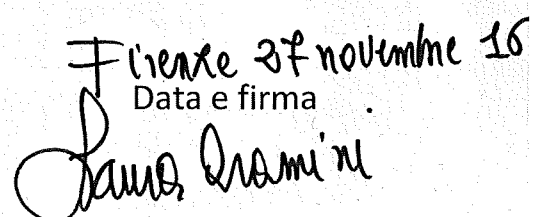 Firenze 27 novembre 16
Data e firma
Laura